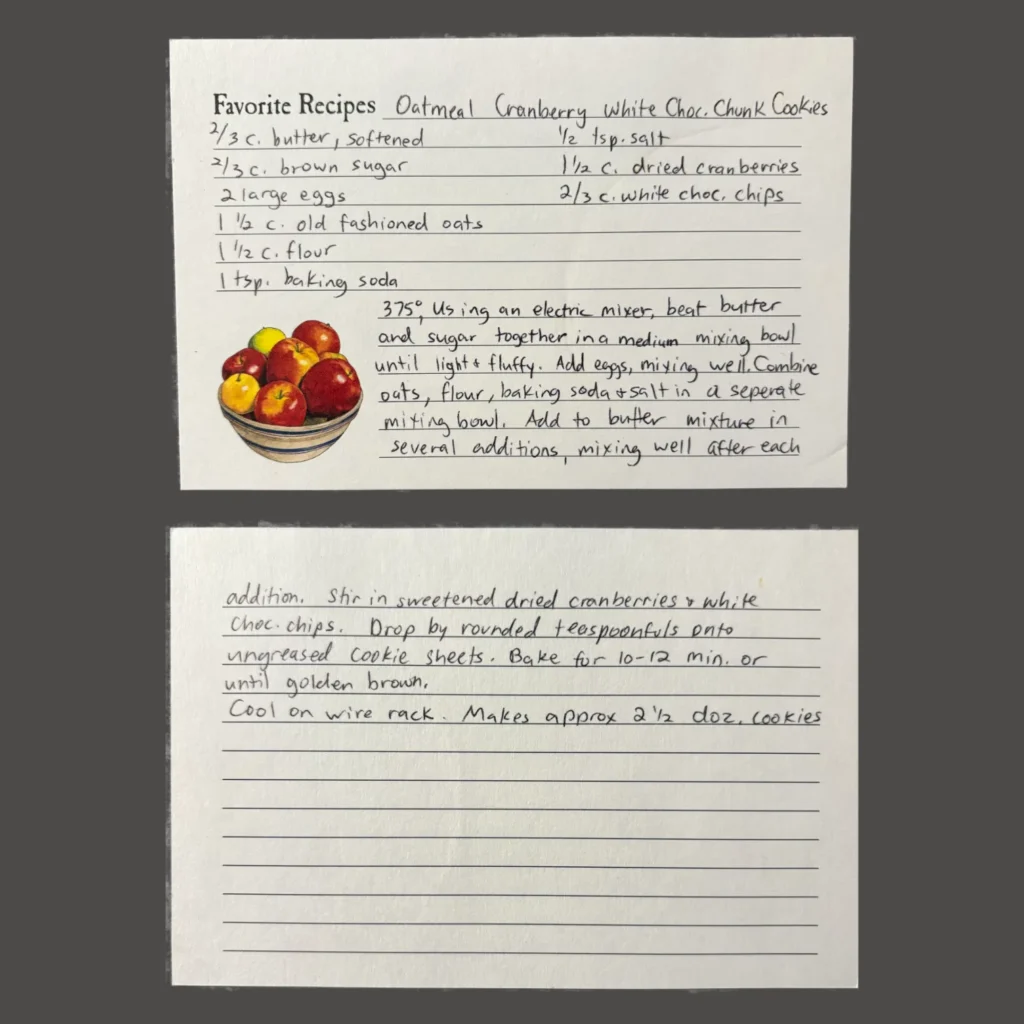 Favorite Recipes Oatmeal Cranberry White Choc. Chunk Cookies
2/3 c. butter, softened
2/3 c. brown sugar
2 large eggs
1 1/2 c. old fashioned oats
1 1/2 c. flour
1 tsp. baking soda
1/2 tsp. salt
1 1/2 c. dried cranberries
2/3 c. white choc. chips
375°, Using an electric mixer, beat butter
and sugar together in a medium mixing bowl
until light & fluffy. Add eggs, mixing well. Combine
oats, flour, baking soda & salt in a seperate
mixing bowl. Add to butter mixture in
several additions, mixing well after each
addition. Stir in sweetened dried cranberries & white
choc. chips. Drop by rounded teaspoonfuls onto
ungreased cookie sheets. Bake for 10-12 min. or
until golden brown.
Cool on wire rack. Makes approx 2 1/2 doz. cookies